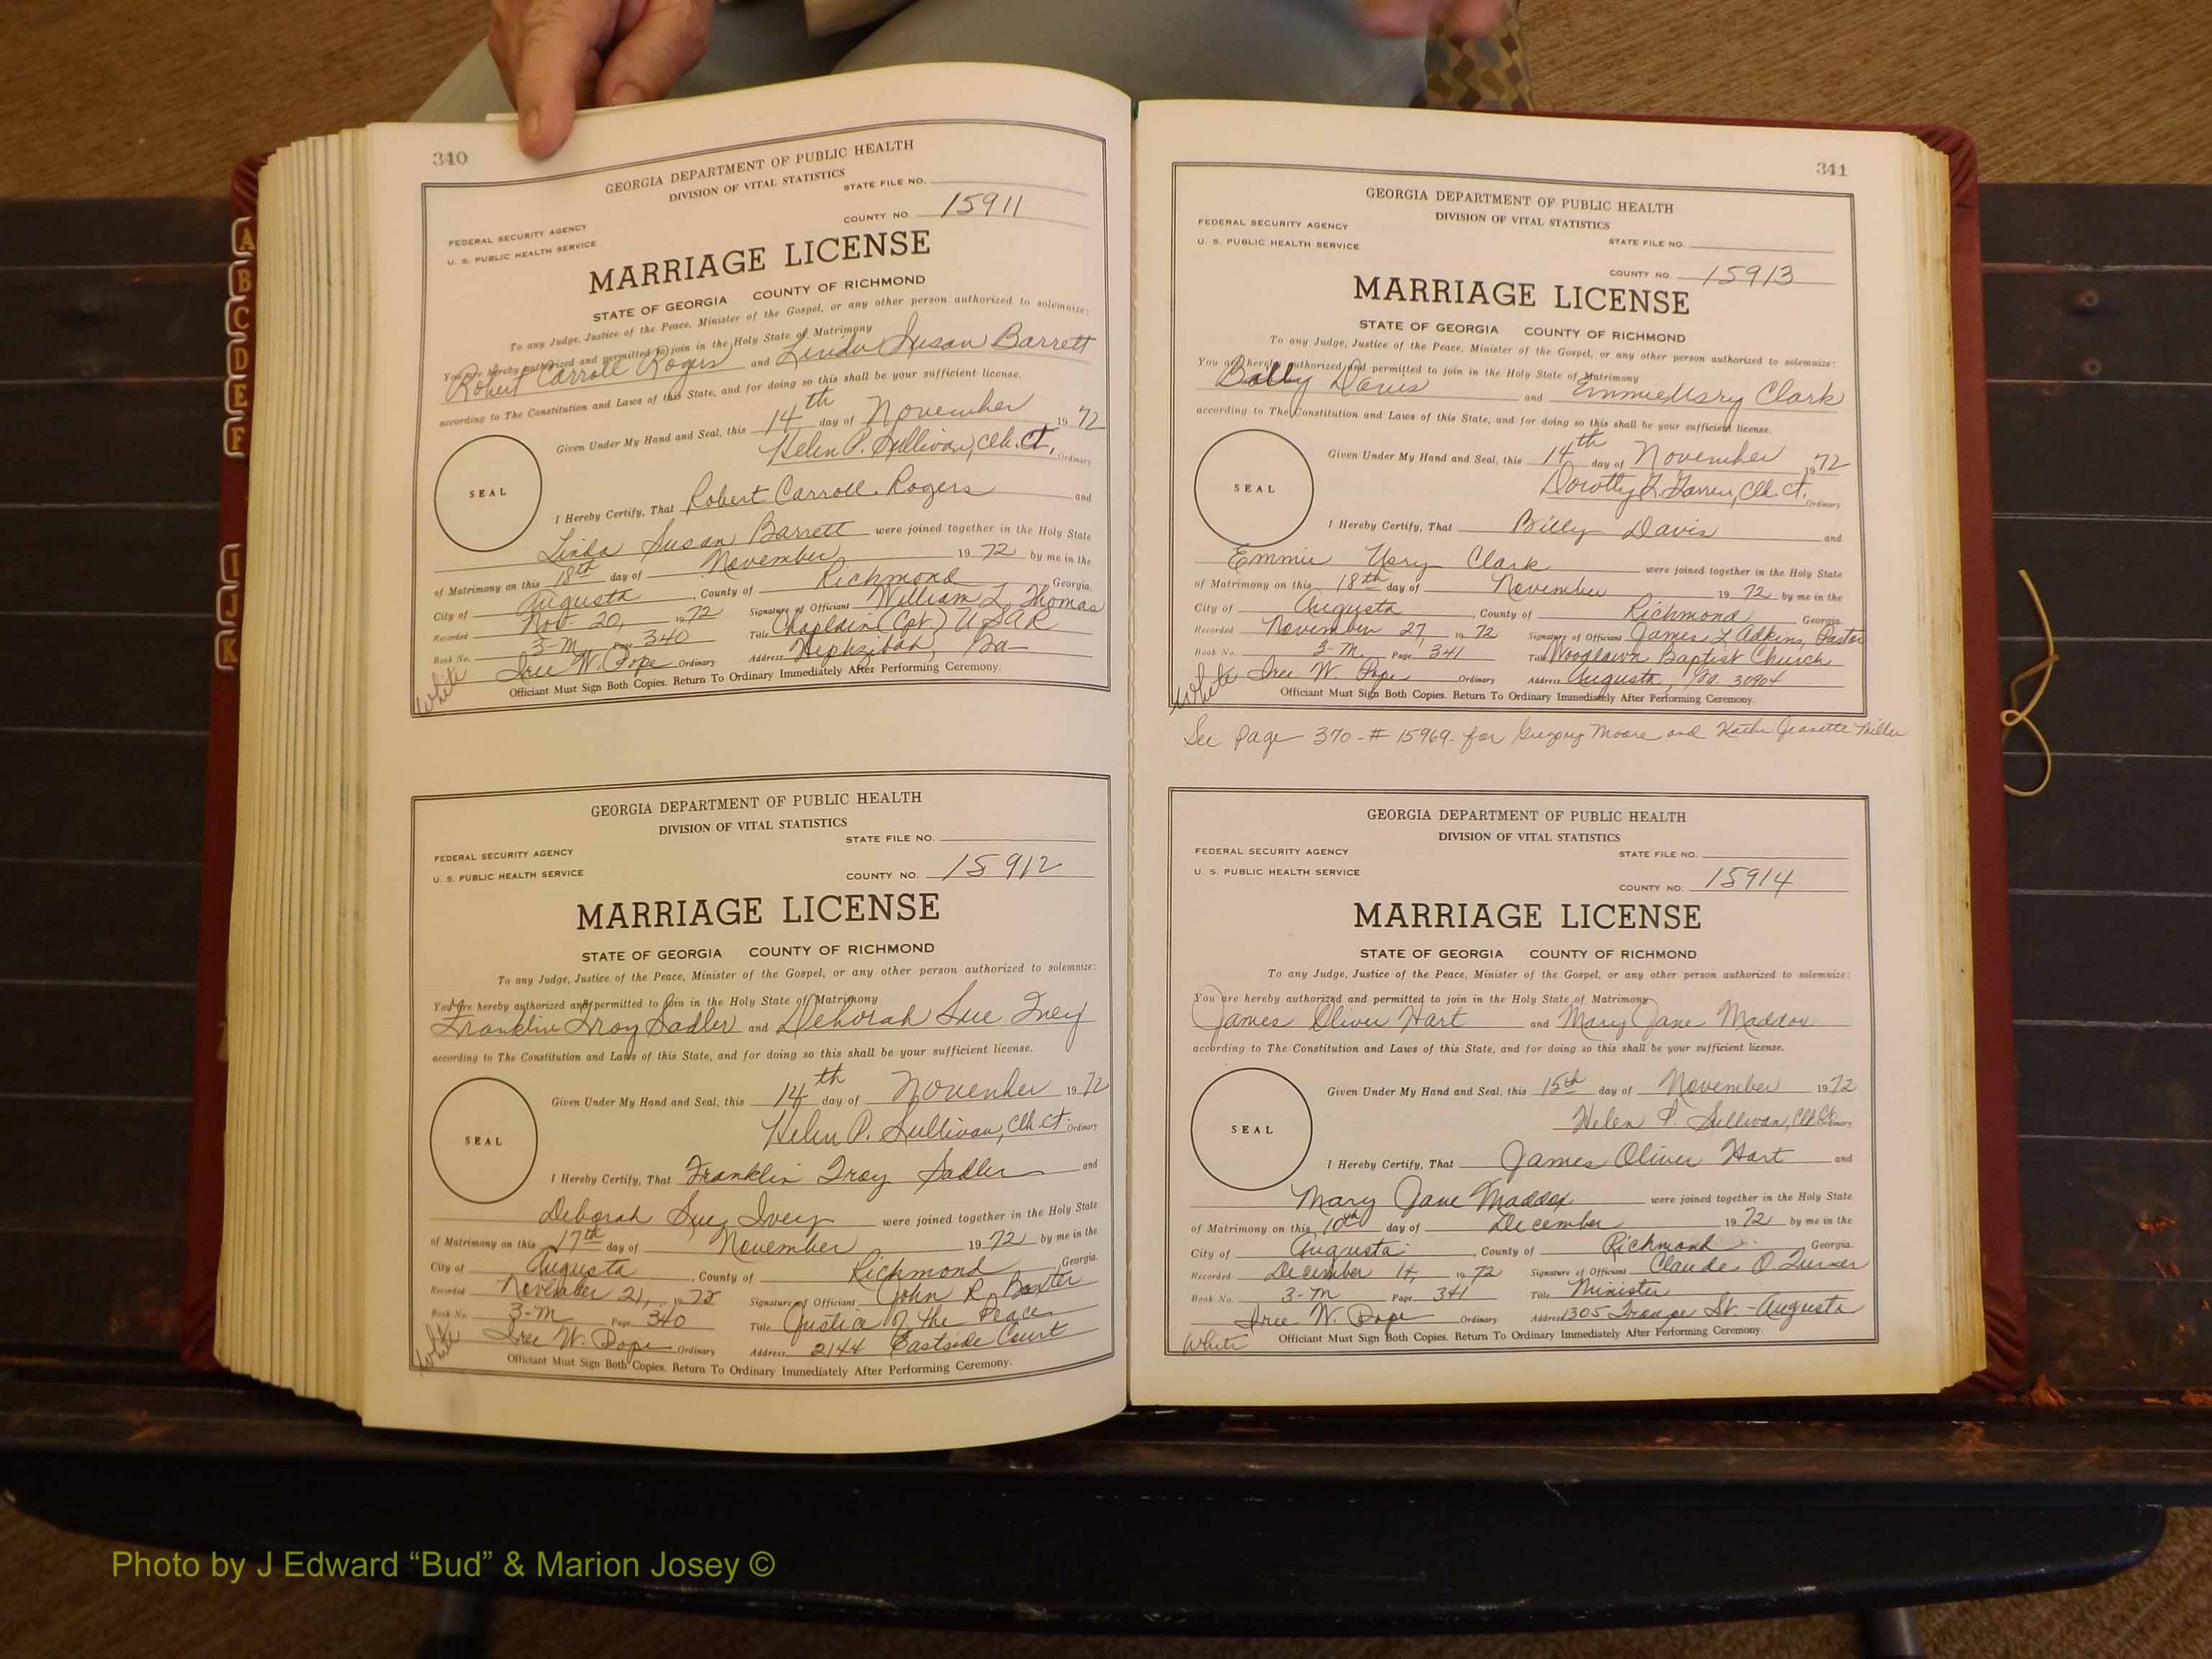 340
GEORGIA DEPARTMENT OF PUBLIC HEALTH
DIVISION OF VITAL STATISTICS
STATE FILE NO.
COUNTY NO. 15911
FEDERAL SECURITY AGENCY
U. S. PUBLIC HEALTH SERVICE
MARRIAGE LICENSE
STATE OF GEORGIA COUNTY OF RICHMOND
To any Judge, Justice of the Peace, Minister of the Gospel, or any other person authorized to solemnize:
You are hereby authorized and permitted to join in the Holy State of Matrimony
Robert Carroll Rogers and Linda Susan Barrett
according to The Constitution and Laws of this State, and for doing so this shall be your sufficient license.
Given Under My Hand and Seal, this 14th day of November 1972
Helen P. Sullivan, Clk. Ct. Ordinary
SEAL
I Hereby Certify, That Robert Carroll Rogers and
Linda Susan Barrett were joined together in the Holy State
of Matrimony on this 18th day of November 1972 by me in the
City of Augusta, County of Richmond Georgia.
Recorded Nov. 20, 1972 Signature of Officiant William L. Thomas
Book No. 3-M Page 340 Title Chaplain (Cpt.) USAR
Iree W. Pope Ordinary Address Hephzibah, Ga
White
Officiant Must Sign Both Copies. Return To Ordinary Immediately After Performing Ceremony.
GEORGIA DEPARTMENT OF PUBLIC HEALTH
DIVISION OF VITAL STATISTICS
STATE FILE NO.
FEDERAL SECURITY AGENCY
U. S. PUBLIC HEALTH SERVICE
COUNTY NO. 15912
MARRIAGE LICENSE
STATE OF GEORGIA COUNTY OF RICHMOND
To any Judge, Justice of the Peace, Minister of the Gospel, or any other person authorized to solemnize:
You are hereby authorized and permitted to join in the Holy State of Matrimony
Franklin Troy Sadler and Deborah Sue Ivey
according to The Constitution and Laws of this State, and for doing so this shall be your sufficient license.
Given Under My Hand and Seal, this 14th day of November 1972
Helen P. Sullivan, Clk. Ct. Ordinary
SEAL
I Hereby Certify, That Franklin Troy Sadler and
Deborah Sue Ivey were joined together in the Holy State
of Matrimony on this 17th day of November 1972 by me in the
City of Augusta, County of Richmond, Georgia.
Recorded November 21, 1972 Signature of Officiant John R. Baxter
Book No. 3-M Page 340 Title Justice of the Peace
Iree W. Pope Ordinary Address 2144 Eastside Court
White
Officiant Must Sign Both Copies. Return To Ordinary Immediately After Performing Ceremony.
341
GEORGIA DEPARTMENT OF PUBLIC HEALTH
DIVISION OF VITAL STATISTICS
FEDERAL SECURITY AGENCY
U. S. PUBLIC HEALTH SERVICE
STATE FILE NO.
COUNTY NO. 15913
MARRIAGE LICENSE
STATE OF GEORGIA COUNTY OF RICHMOND
To any Judge, Justice of the Peace, Minister of the Gospel, or any other person authorized to solemnize:
You are hereby authorized and permitted to join in the Holy State of Matrimony
Davis and Emmie Usry Clark
according to The Constitution and Laws of this State, and for doing so this shall be your sufficient license.
Given Under My Hand and Seal, this 14th day of November 1972
Dorothy Clk. Ct. Ordinary
SEAL
I Hereby Certify, That Billy Davis and
Emmie Usry Clark were joined together in the Holy State
of Matrimony on this 18th day of November 1972 by me in the
City of Augusta, County of Richmond, Georgia
Recorded November 27, 1972 Signature of Officiant James L Adkins, Pastor
Book No. 3-M Page 341 Title Woodlawn Baptist Church
Iree W. Pope Ordinary Address Augusta, Ga. 30904
White
Officiant Must Sign Both Copies. Return To Ordinary Immediately After Performing Ceremony.
See page 370 - # 15969 - for Gregory Moore and Jeanette Miller
GEORGIA DEPARTMENT OF PUBLIC HEALTH
DIVISION OF VITAL STATISTICS
FEDERAL SECURITY AGENCY
U. S. PUBLIC HEALTH SERVICE
STATE FILE NO.
COUNTY NO. 15914
MARRIAGE LICENSE
STATE OF GEORGIA COUNTY OF RICHMOND
To any Judge, Justice of the Peace, Minister of the Gospel, or any other person authorized to solemnize:
You are hereby authorized and permitted to join in the Holy State of Matrimony
James Oliver Hart and Mary Jane Maddox
according to The Constitution and Laws of this State, and for doing so this shall be your sufficient license.
Given Under My Hand and Seal, this 15th day of November 1972
Helen P. Sullivan, Clk Ct. Ordinary
SEAL
I Hereby Certify, That James Oliver Hart and
Mary Jane Maddox were joined together in the Holy State
of Matrimony on this 10th day of December 1972 by me in the
City of Augusta, County of Richmond Georgia.
Recorded December 14, 1972 Signature of Officiant Claude O. Turner
Book No. 3-M Page 341 Title Minister
Iree W. Pope Ordinary Address 1305 St. - Augusta
White
Officiant Must Sign Both Copies. Return To Ordinary Immediately After Performing Ceremony.
A
B
C
D
E
F
I
J
K
Photo by J Edward “Bud” & Marion Josey ©